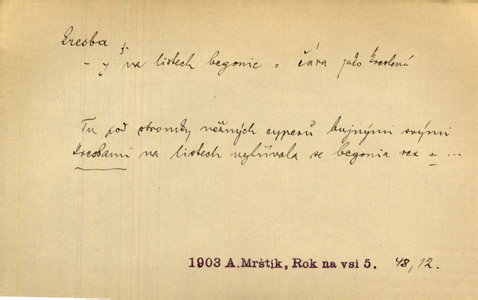 kresba f.
- y na listech begonie = čára jako kreslená
Tu pod stromky něžných cyperů bujnými svými
kresbami na listech vyhřívala se begonia rex = ...
1903 A. Mrštík, Rok na vsi 5. 48, 12.